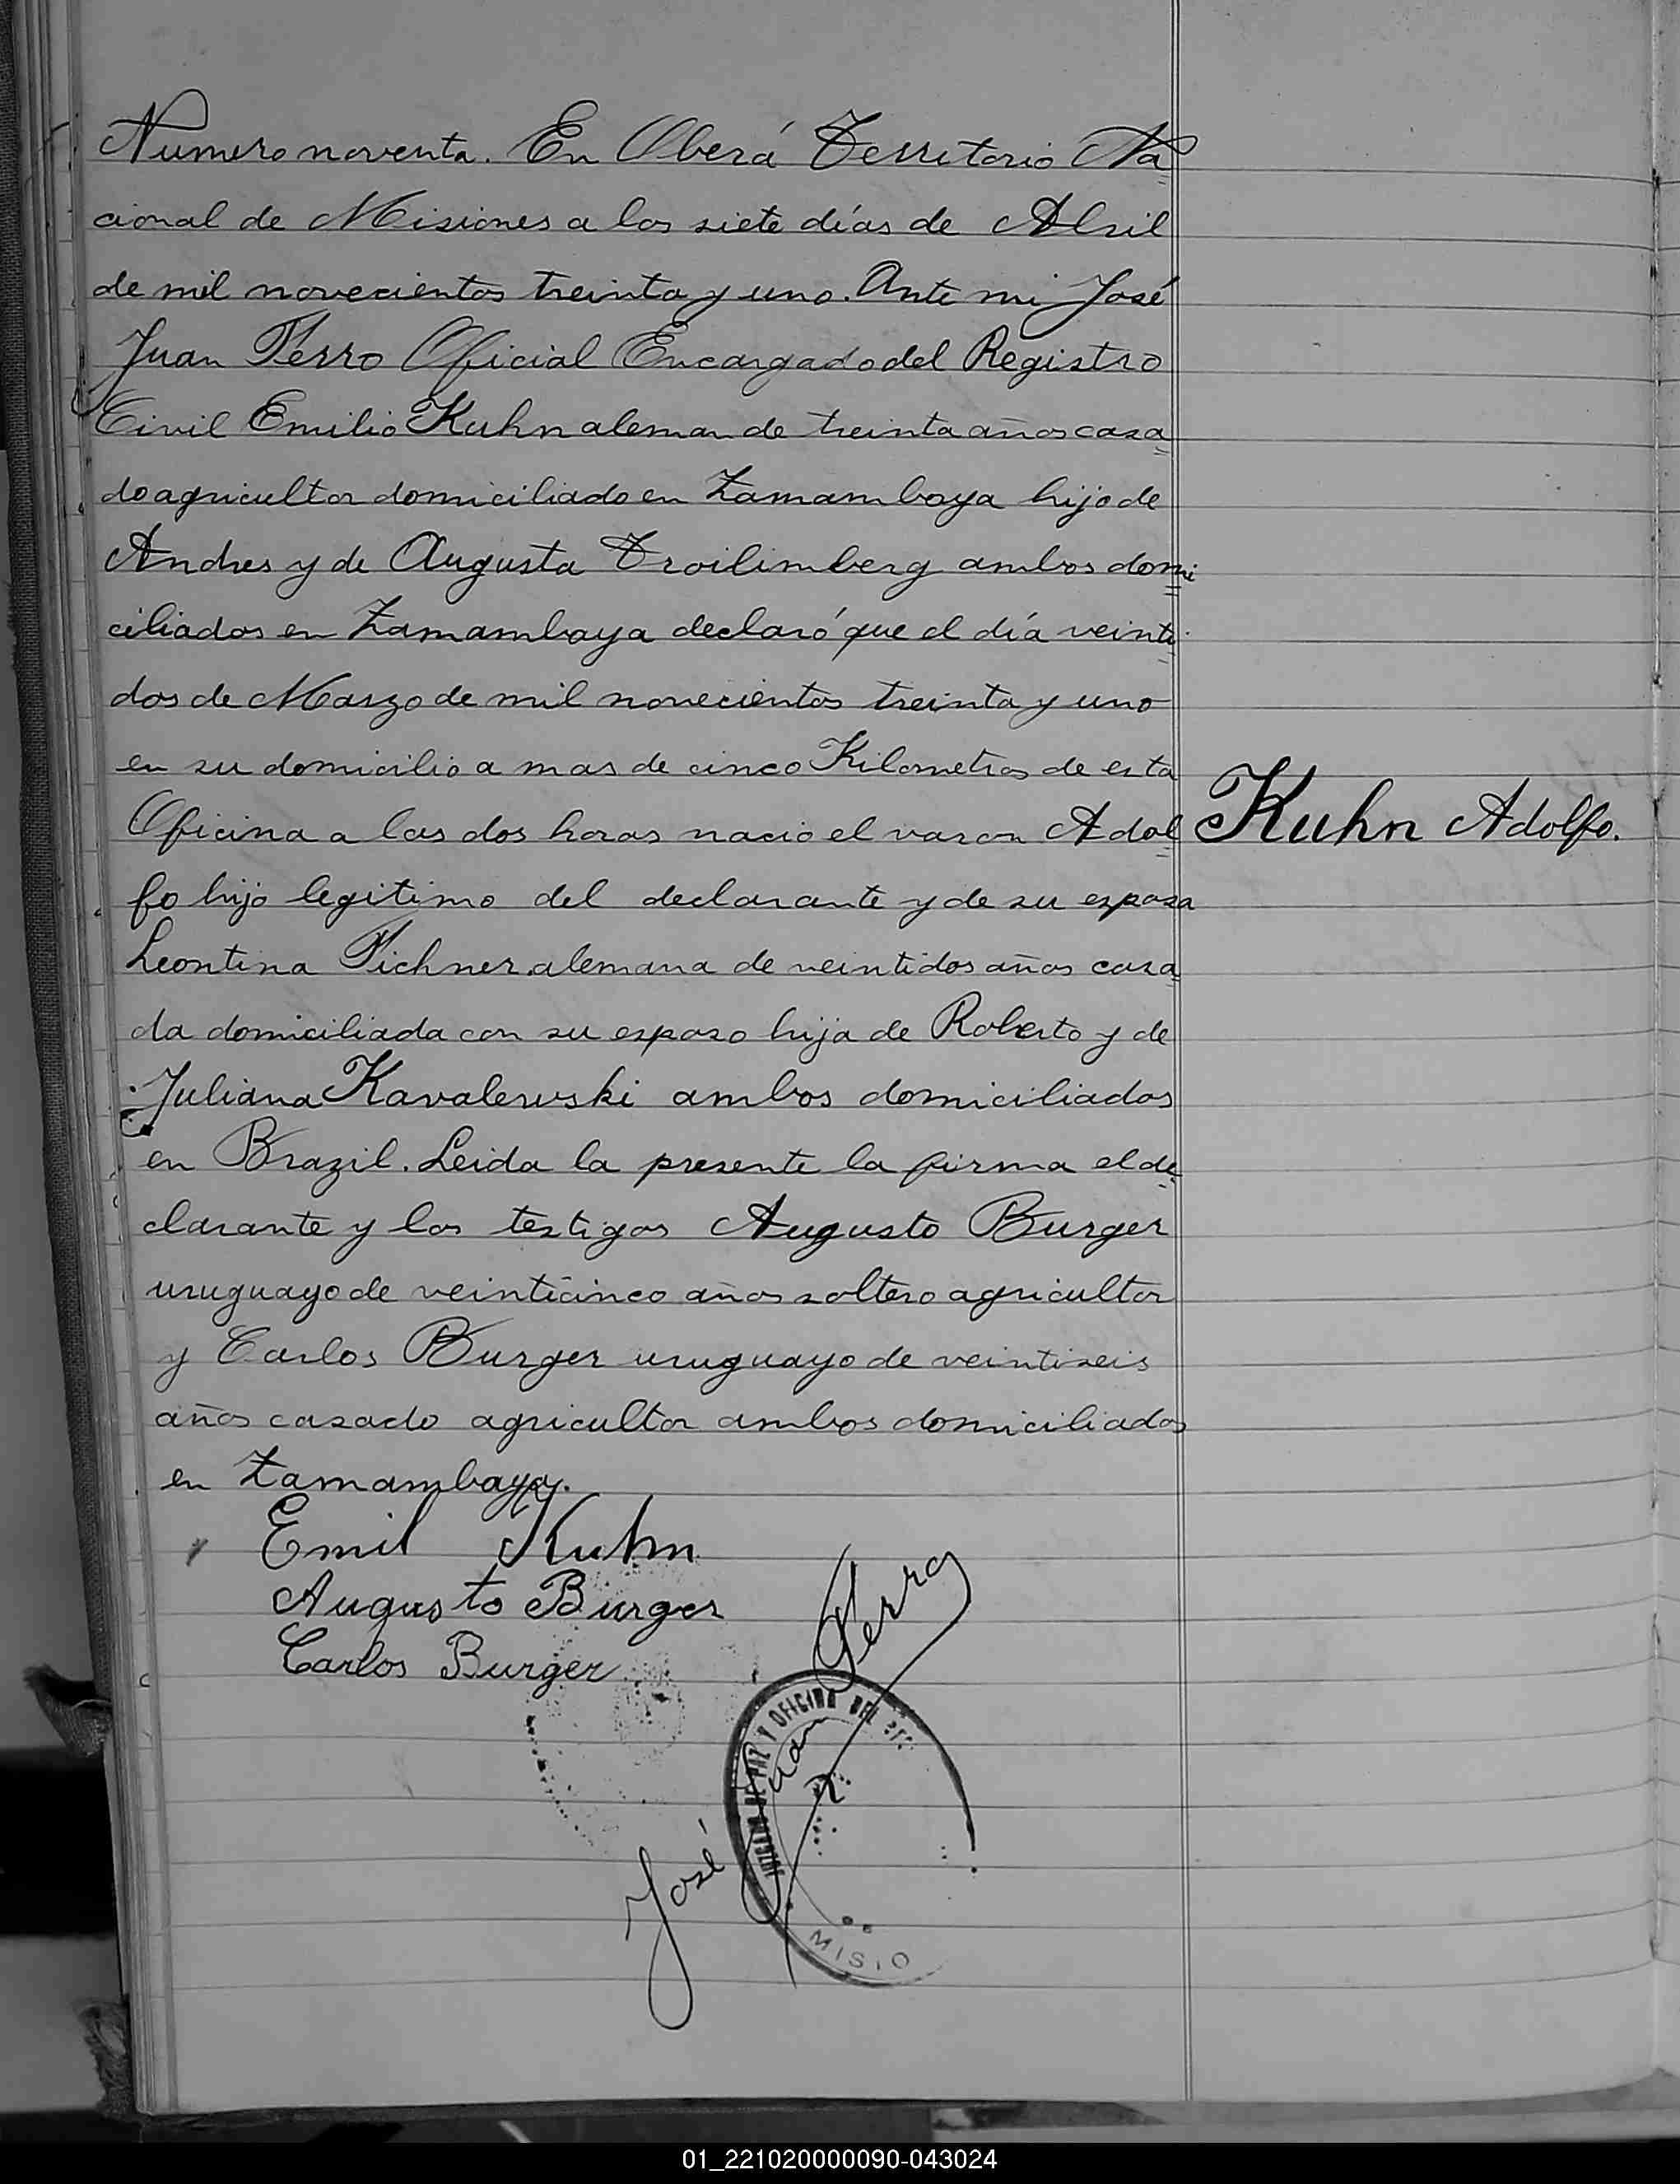 Numero noventa. En Oberá Territorio Na
cional de Misiones a los siete días de Abril
de mil novecientos treinta y uno. Ante mi José
Juan Ferro Oficial Encargado del Registro
Civil Emilio Kuhn aleman de treinta años casa
do agricultor domiciliado en Zamambaya hijo de
Andres y de Augusta Troilimberg ambos domi
ciliados en Zamambaya declaró que el día veinti
dos de Marzo de mil novecientos treinta y uno
en su domicilio a mas de cinco Kilometros de esta
Oficina a las dos horas nacio el varon Adol
Kuhn Adolfo.
fo hijo legitimo del declarante y de su esposa
Leontina Fichner alemana de veintidos años casa
da domiciliada con su esposo hija de Roberto y de
Juliana Kavalewski ambos domiciliados
en Brazil. Leida la presente la firma el de
clarante y los testigos Augusto Burger
uruguayo de veinticinco años soltero agricultor
y Carlos Burger uruguayo de veintiseis
años casado agricultor ambos domiciliados
en Zamambaya.
Emil Kuhn
Augusto Burger
Carlos Burger
José Juan Ferro
DE PAZ Y OFICINA DEL
MISIO
01_221020000090-043024